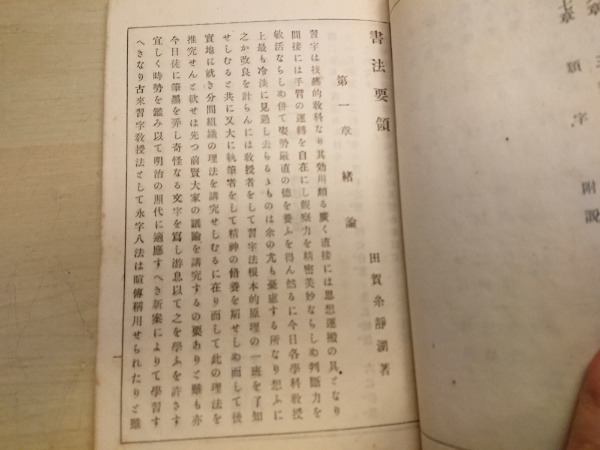 書法要領
田賀糸靜潤著
第一章 緒論
習字は技藝的教科なり其効用頗る廣く直接には思想運搬の具となり
間接には手臂の運轉を自在にし觀察力を精密美妙ならしめ判斷力を
敏活ならしめ併て姿勢嚴直の德を養ふを得ん然るに今日各學科敎授
上最も冷淡に見過し去らるゝものは余の尤も憂慮する所なり想ふに
之か改良を計らんには敎授者をして習字法根本的原理の一班を了知
せしむると共に又大に執筆者をして精神の脩養を爲せしめ而して後
實地に就き分間組織の理法を講究せしむるに在り而して此の理法を
推究せんと欲せは先つ前賢大家の議論を講究するの要ありと雖も亦
今日徒に筆墨を弄し奇怪なる文字を寫し游息以て之を學ふを許さす
宜しく時勢を鑑み以て明治の照代に適應すへき新案によりて學習す
へきなり古來習字敎授法として永字八法は喧傳稱用せられたりと雖
章
字
附說